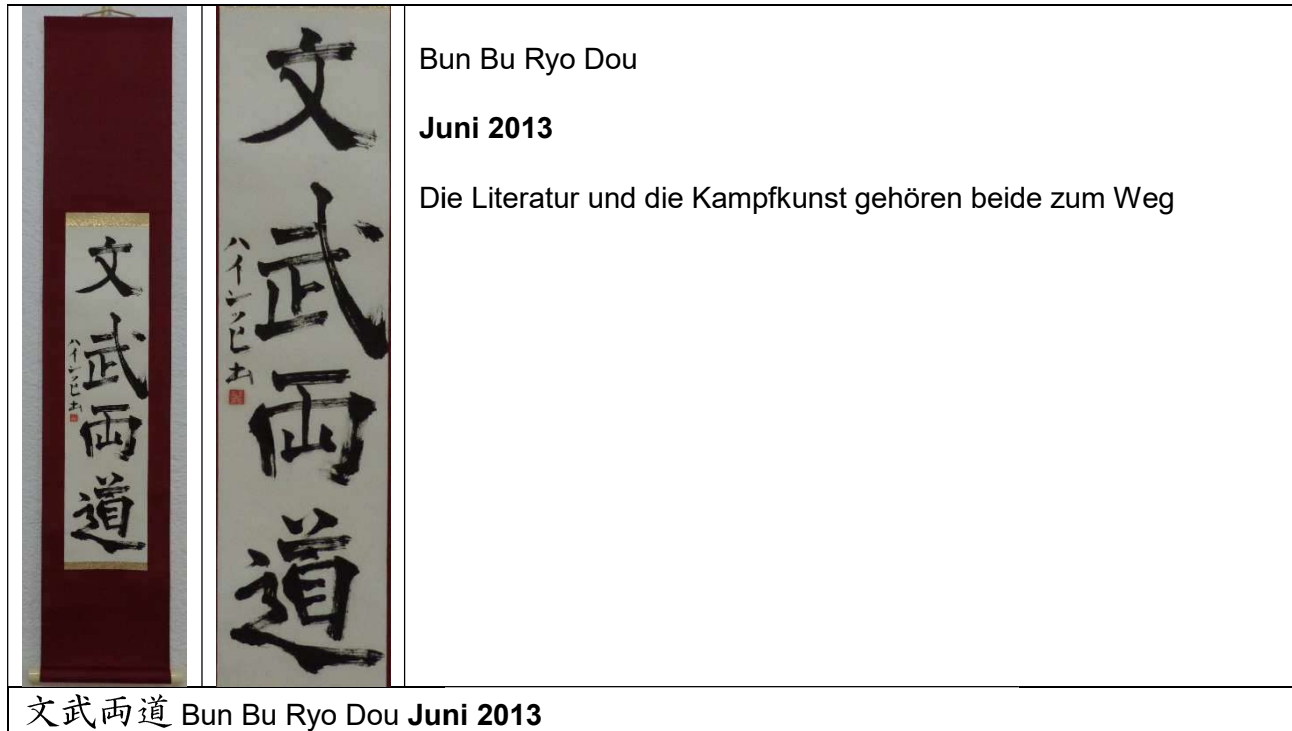 文武両道
文武両道
Bun Bu Ryo Dou
Juni 2013
Die Literatur und die Kampfkunst gehören beide zum Weg
文武両道 Bun Bu Ryo Dou Juni 2013